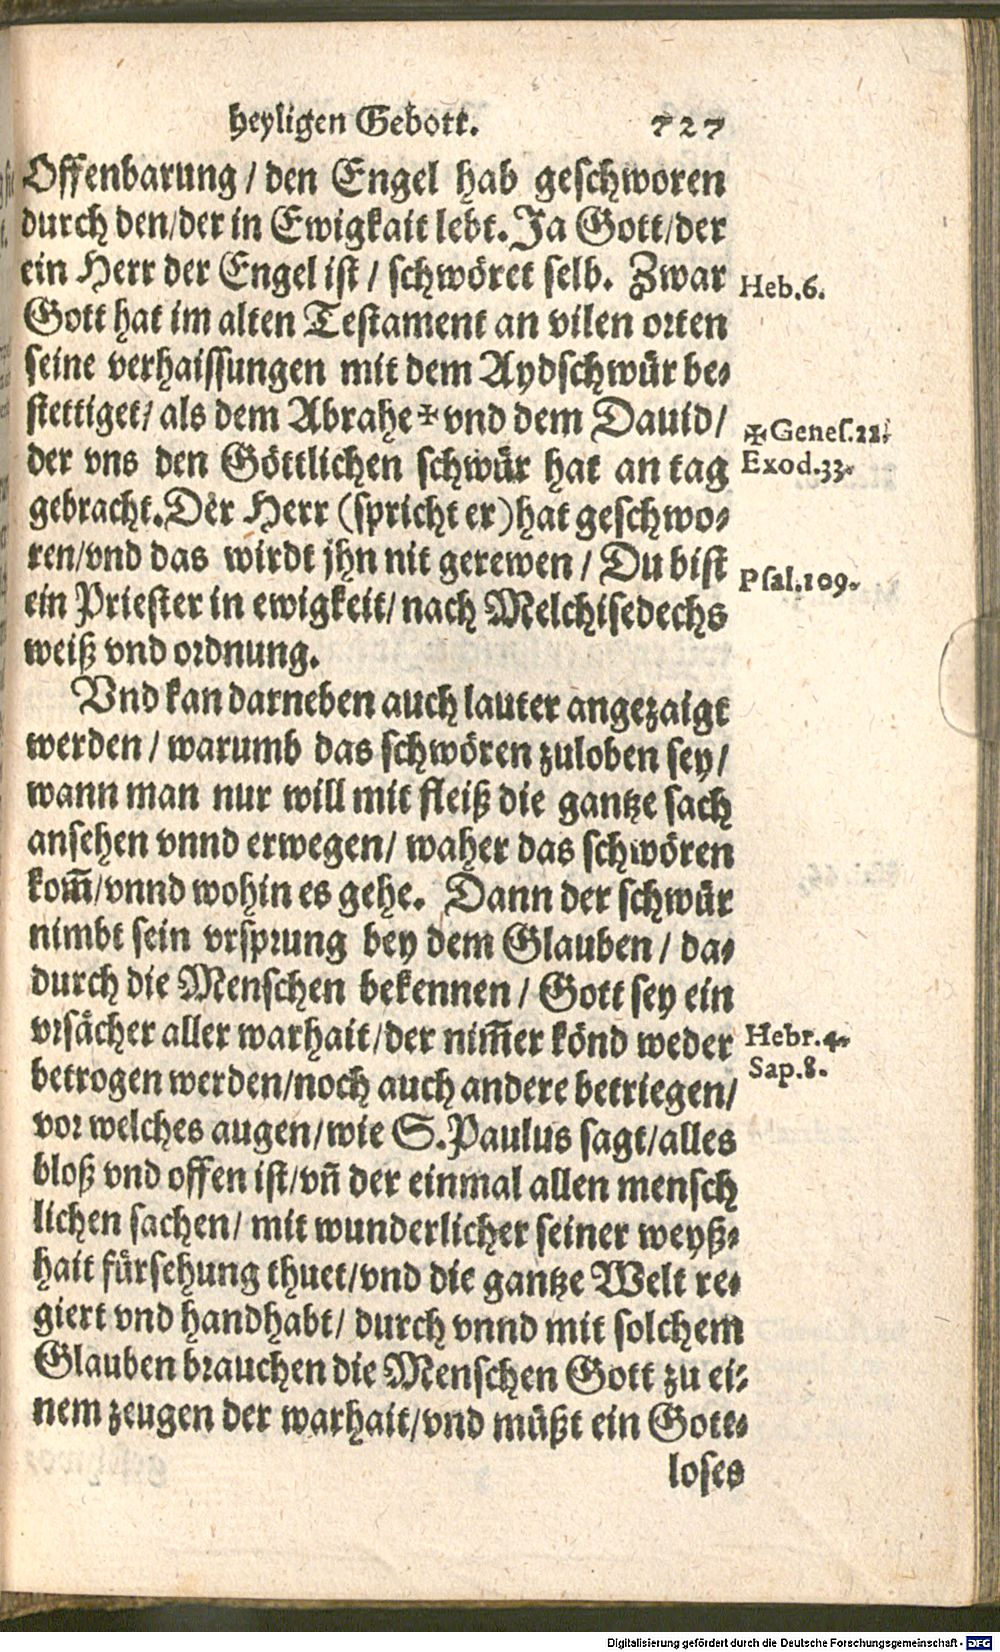 heyligen Gebott. 727
Offenbarung / den Engel hab geschworen
durch den/der in Ewigkait lebt. Ja Gott/der
ein Herr der Engel ist / schwöret selb. Zwar
Heb.6.
Gott hat im alten Testament an vilen orten
seine verhaissungen mit dem Aydschwür be-
stettiget/ als dem Abrahe ✠ vnd dem Dauid/
✠ Genes.22.
der vns den Göttlichen schwür hat an tag
Exod.33.
gebracht. Der Herr (spricht er) hat geschwo-
ren/vnd das wirdt jhn nit gerewen / Du bist
Psal.109.
ein Priester in ewigkeit/ nach Melchisedechs
weiß vnd ordnung.
Vnd kan darneben auch lauter angezaigt
werden / warumb das schwören zuloben sey/
wann man nur will mit fleiß die gantze sach
ansehen vnnd erwegen/ waher das schwören
kom̃/vnnd wohin es gehe. Dann der schwür
nimbt sein vrsprung bey dem Glauben / da-
durch die Menschen bekennen / Gott sey ein
vrsächer aller warhait/der nim̃er könd weder
Hebr.4.
betrogen werden/noch auch andere betriegen/
Sap.8.
vor welches augen/wie S. Paulus sagt/alles
bloß vnd offen ist/vñ der einmal allen mensch
lichen sachen/ mit wunderlicher seiner weyß-
hait fürsehung thuet/vnd die gantze Welt re-
giert vnd handhabt/ durch vnnd mit solchem
Glauben brauchen die Menschen Gott zu ei-
nem zeugen der warhait/vnd müßt ein Gott-
loses
Digitalisierung gefördert durch die Deutsche Forschungsgemeinschaft - DFG